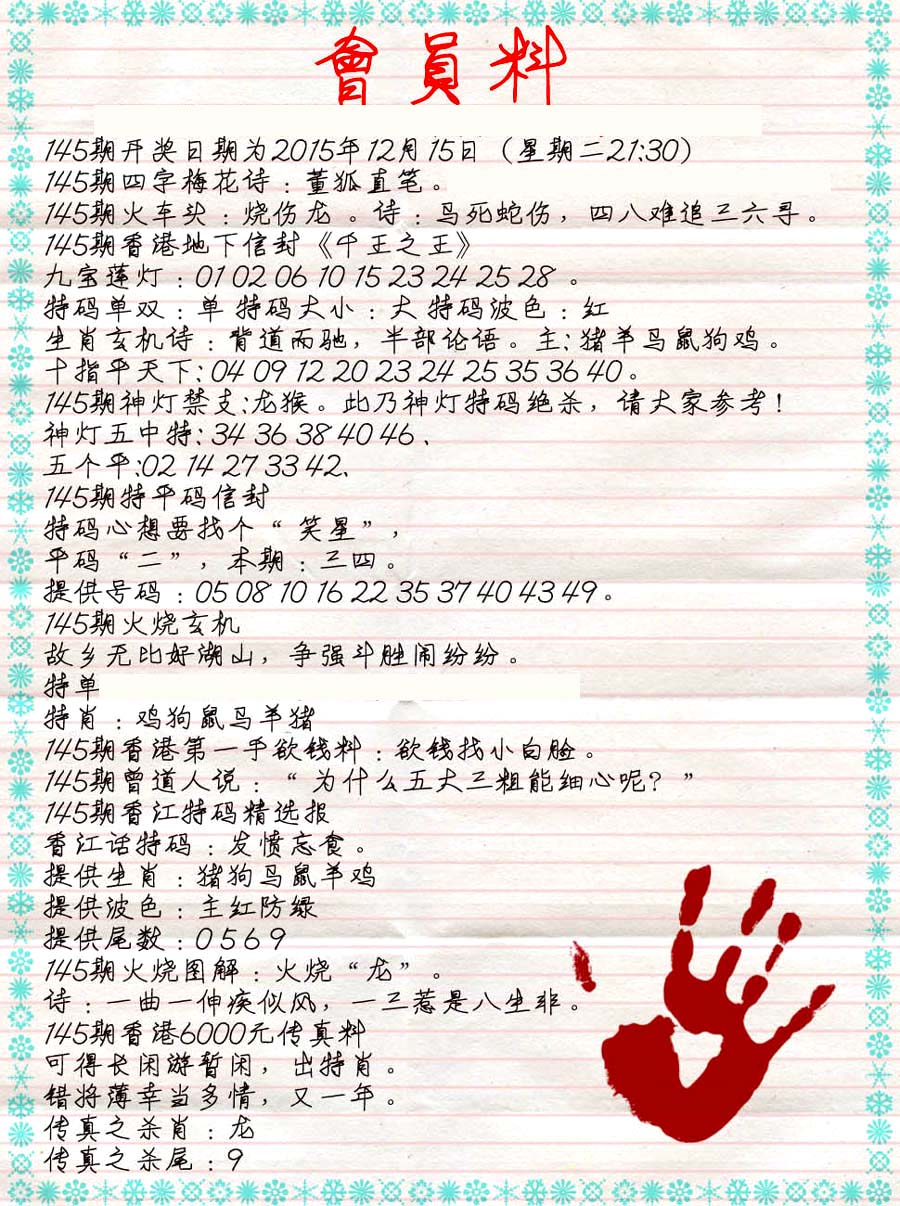 會員料
145期开奖日期为2015年12月15日（星期二21:30）
145期四字梅花诗：董狐直笔。
145期火车头：烧伤龙。诗：鸟死蛇伤，四八难追三六寻。
145期香港地下信封《千王之王》
九宝莲灯：01 02 06 10 15 23 24 25 28 。
特码单双：单 特码大小：大 特码波色：红
生肖玄机诗：背道而驰，半部论语。主:猪羊马鼠狗鸡。
十指平天下:04 09 12 20 23 24 25 35 36 40。
145期神灯禁支:龙猴。此乃神灯特码绝杀，请大家参考！
神灯五中特:34 36 38 40 46、
五个平:02 14 27 33 42、
145期特平码信封
特码心想要找个“笑星”，
平码“二”，本期：三四。
提供号码：05 08 10 16 22 35 37 40 43 49。
145期火烧玄机
故乡无比好湖山，争强斗胜闹纷纷。
特单
特肖：鸡狗鼠马羊猪
145期香港第一手欲钱料：欲钱找小白脸。
145期曾道人说：“为什么五大三粗能细心呢？”
145期香江特码精选报
香江话特码：发愤忘食。
提供生肖：猪狗马鼠羊鸡
提供波色：主红防绿
提供尾数：0 5 6 9
145期火烧图解：火烧“龙”。
诗：一曲一伸疾似风，一三惹是八生非。
145期香港6000元传真料
可得长闲游暂闲，出特肖。
错将薄幸当多情，又一年。
传真之杀肖：龙
传真之杀尾：9